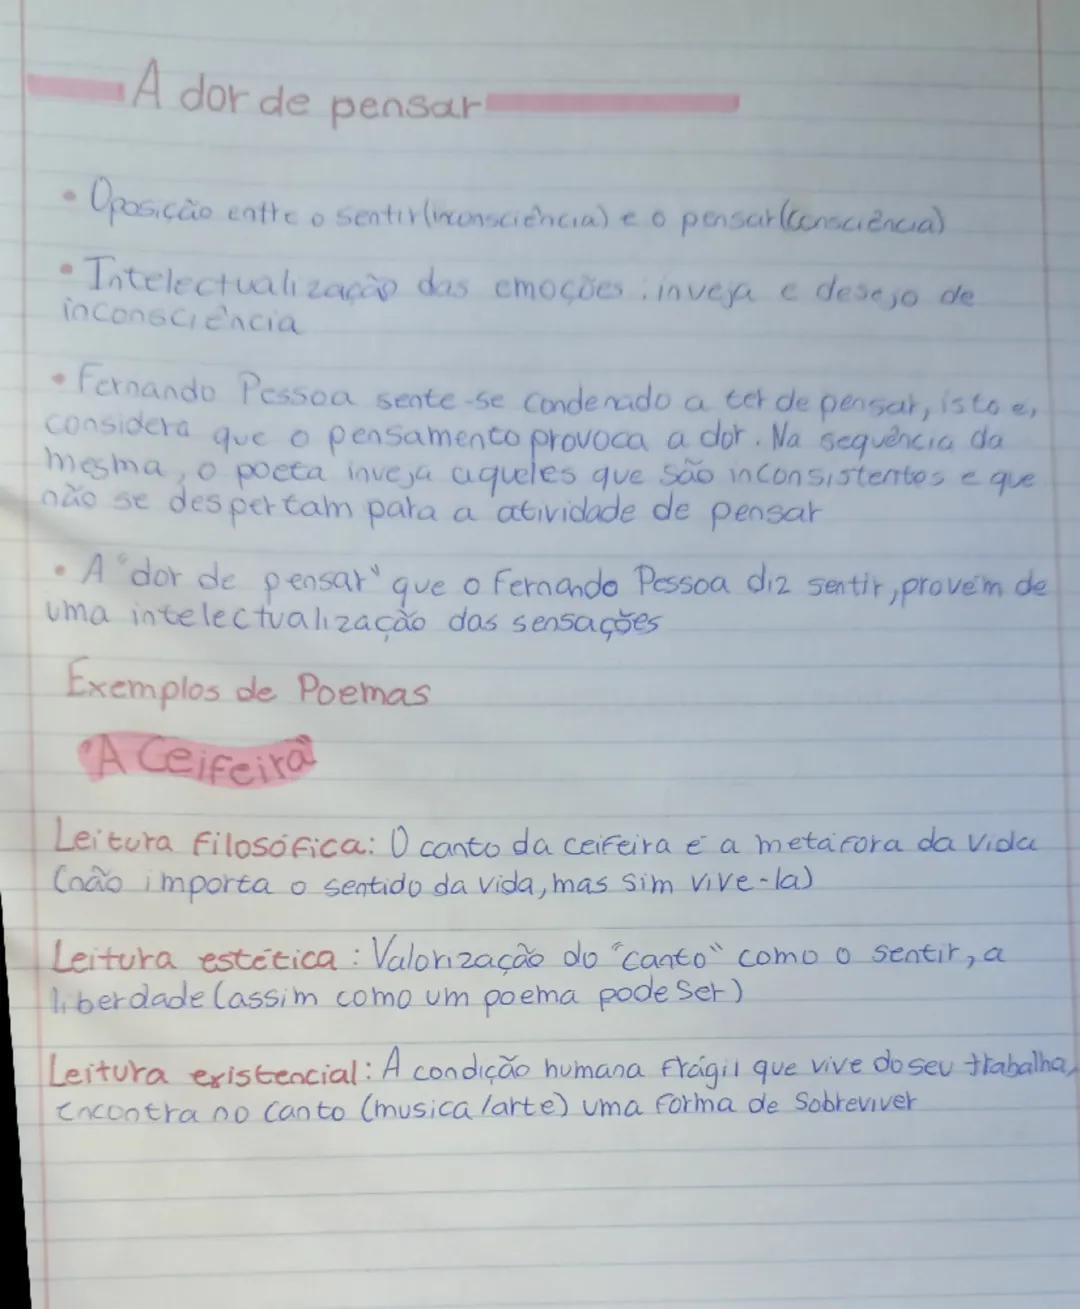 A dor de pensar
• Oposição entre o sentir (inconsciência) e o pensar (consciência)
• Intelectualização das emoções: inveja e desejo de
inconsciência
• Fernando Pessoa sente-se condenado a ter de pensar, isto é,
considera que o pensamento provoca a dor. Na sequência da
mesma, o poeta inveja aqueles que são inconsistentes e que
não se despertam para a atividade de pensar
• A "dor de pensar" que o Fernando Pessoa diz sentir, provém de
uma intelectualização das sensações
Exemplos de Poemas
"A Ceifeira"
Leitura filosófica: O canto da ceifeira é a metáfora da vida
(não importa o sentido da vida, mas sim vive-la)
Leitura estética: Valorização do "canto" como o sentir, a
liberdade (assim como um poema pode ser)
Leitura existencial: A condição humana frágil que vive do seu trabalha,
encontra no canto (musica/arte) uma forma de sobreviver